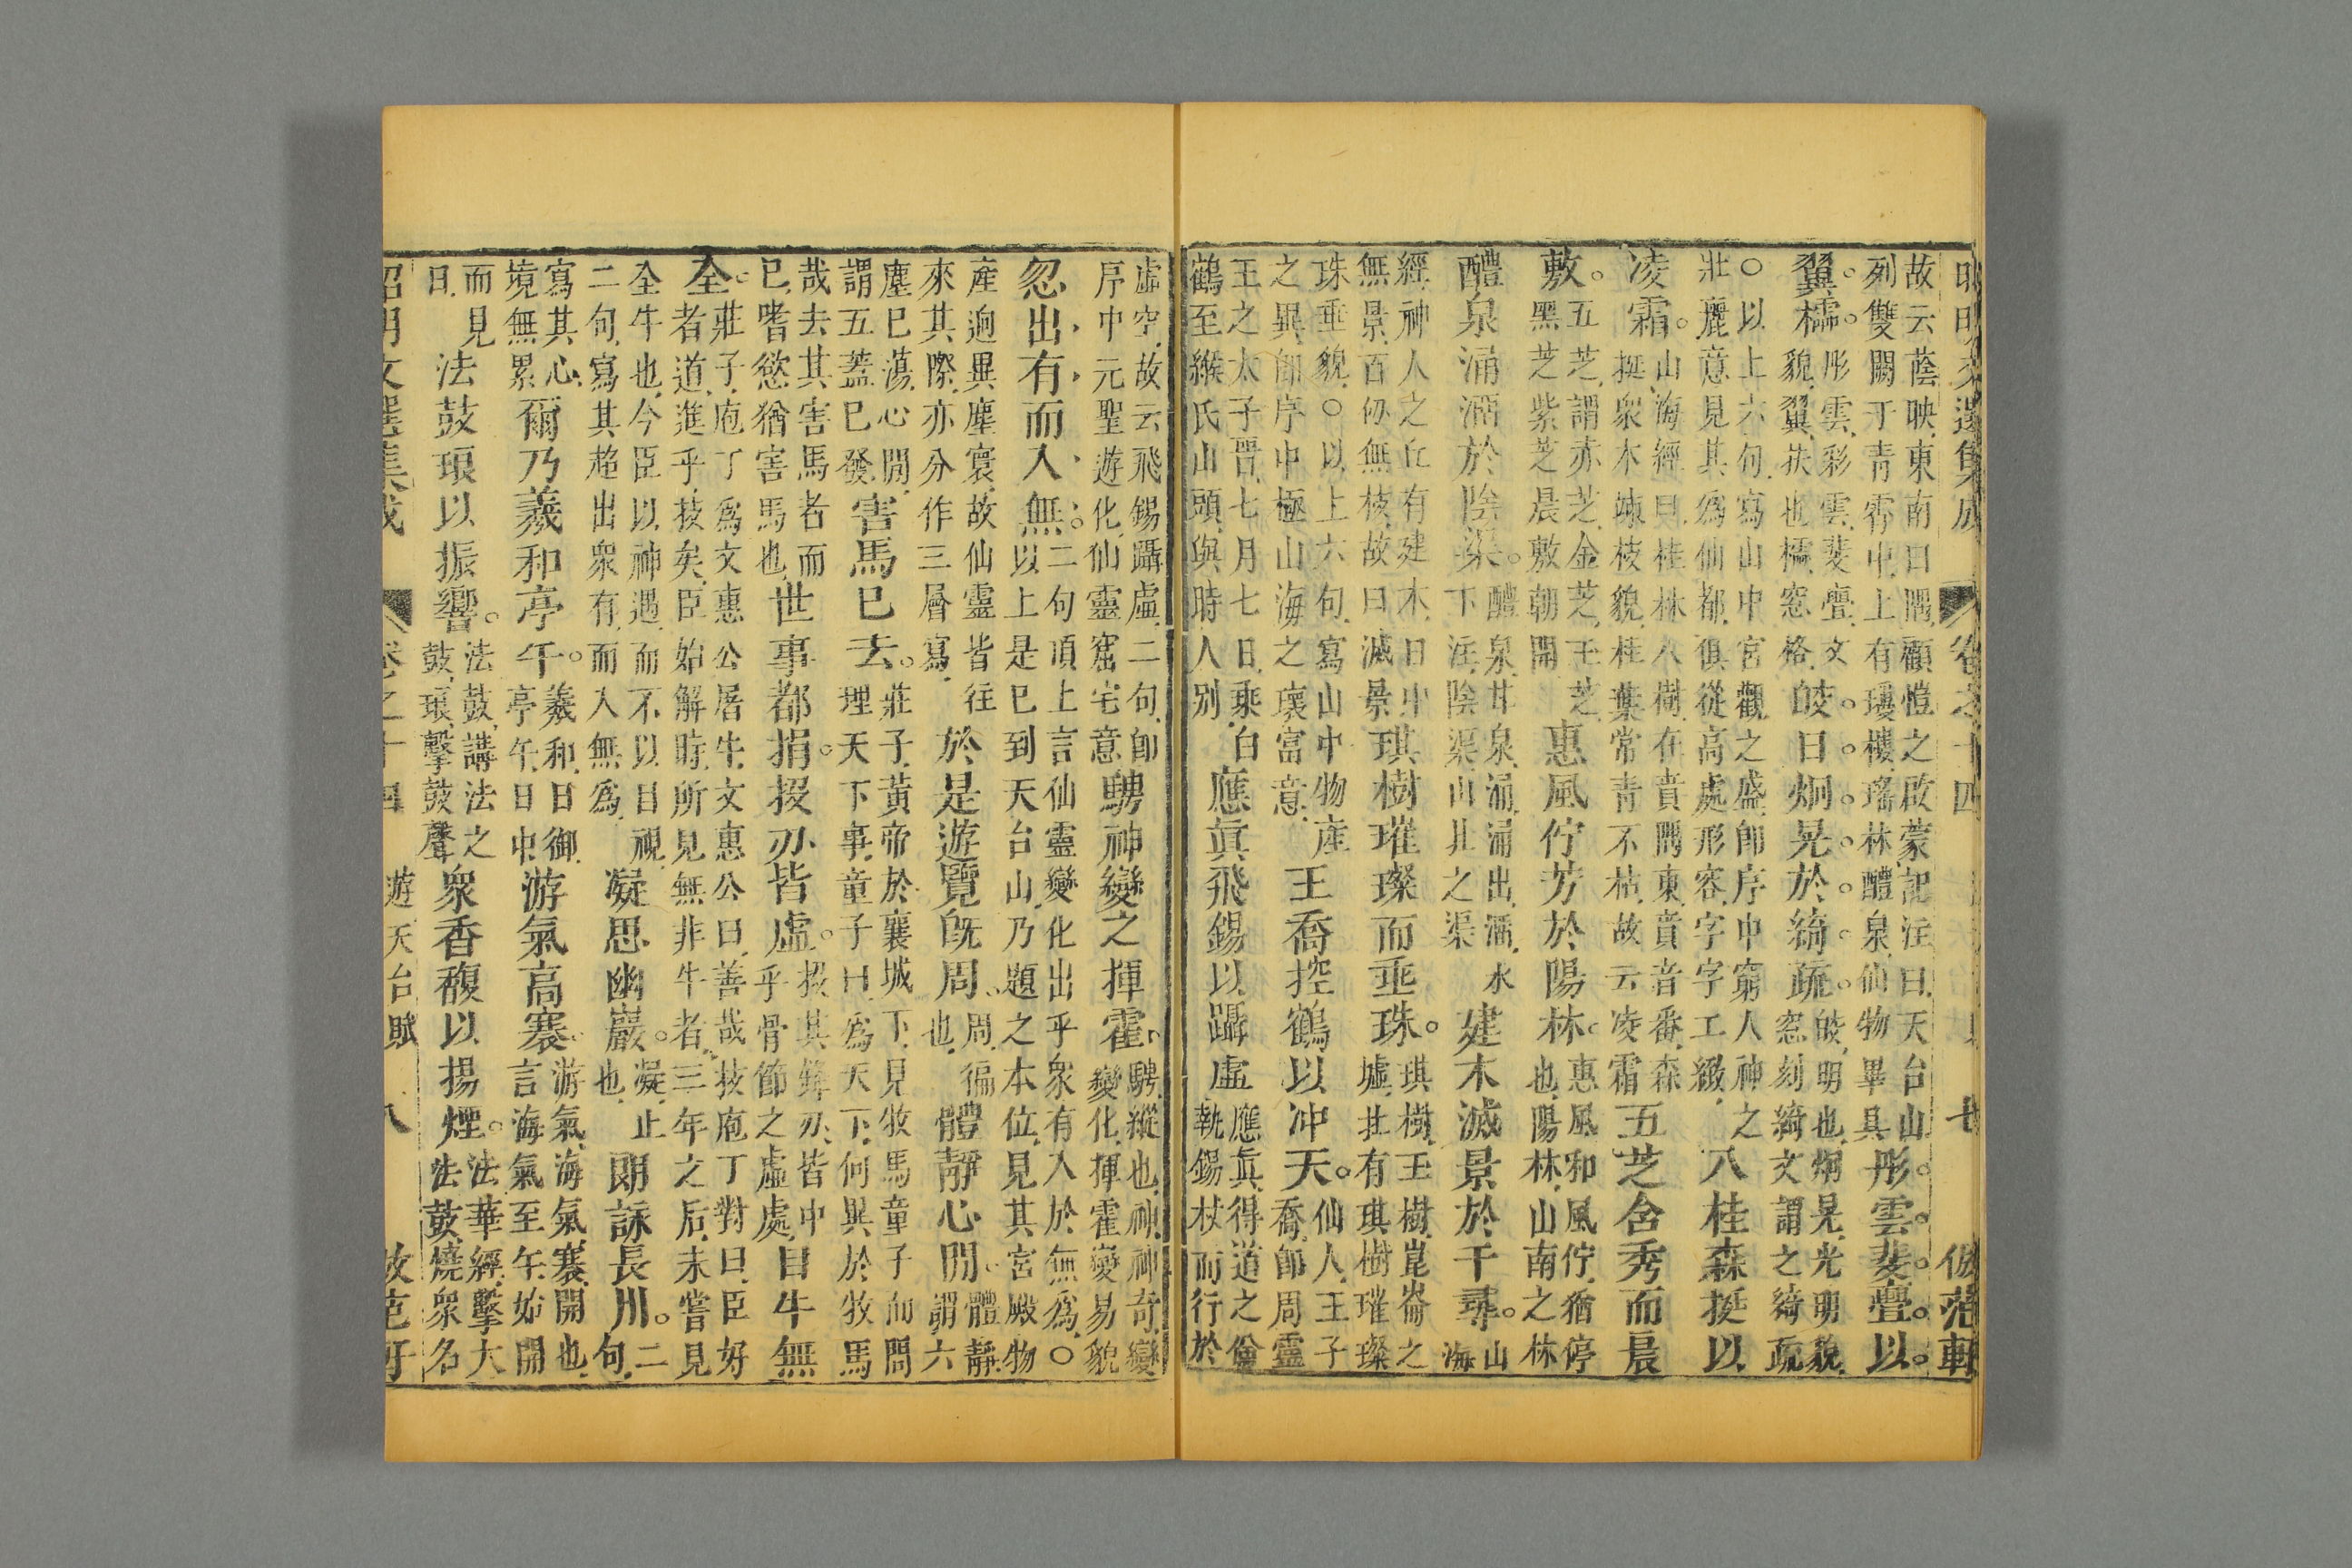 昭明文選集成 卷之十四 七 倣范軒
故云蔭映東南曰隅顧愷之啟蒙記注曰天台山列雙闕于青霄中上有瓊樓瑤林醴泉仙物畢具彤雲斐亹以
翼櫺彤雲彩雲斐亹文貌翼扶也櫺窓格皦日炯晃於綺疏皦明也炯晃光明貌窓刻綺文謂之綺疏
○以上六句寫山中宮觀之盛即序中窮人神之壯麗意見其爲仙都俱從高處形容字字工緻八桂森挺以
凌霜山海經曰桂林八樹在賁隅東賁音番森挺衆木竦枝貌桂葉常青不枯故云凌霜五芝含秀而晨
敷五芝謂赤芝金芝玉芝黑芝紫芝晨敷朝開惠風佇芳於陽林惠風和風佇猶停也陽林山南之林
醴泉涌溜於陰渠醴泉甘泉涌涌出溜水下注陰渠山北之渠建木滅景於千尋山海
經神人之丘有建木日中無景百仞無枝故曰滅景琪樹璀璨而垂珠琪樹玉樹崑崙之墟北有琪樹璀璨
珠垂貌○以上六句寫山中物產之異即序中極山海之瓌富意王喬控鶴以冲天仙人王子喬即周靈
王之太子晉七月七日乘白鶴至緱氏山頭與時人別應眞飛錫以躡虛應眞得道之僧執錫杖而行於
虛空故云飛錫躡虛二句即序中元聖遊化仙靈窟宅意騁神變之揮霍騁縱也神神奇變變化揮霍變易貌
忽出有而入無二句頂上言仙靈變化出乎衆有入於無爲○以上是已到天台山乃題之本位見其宮殿物
產逈異塵寰故仙靈皆往來其際亦分作三層寫於是遊覽旣周周徧也體靜心閒體靜謂六
塵已蕩心閒謂五蓋已發害馬已去莊子黃帝於襄城下見牧馬童子而問理天下事童子曰爲天下何異於牧馬
哉去其害馬者而已嗜慾猶害馬也世事都捐投刃皆虛投其鋒刃皆中乎骨節之虛處目牛無
全莊子庖丁爲文惠公屠牛文惠公曰善哉技庖丁對曰臣好者道進乎技矣臣始解時所見無非牛者三年之后未嘗見
全牛也今臣以神遇而不以目視二句寫其超出衆有而入無爲凝思幽巖凝止也朗詠長川二句
寫其心境無累爾乃羲和亭午羲和日御亭午日中游氣高褰游氣海氣褰開也言海氣至午始開
而見日法鼓琅以振響法鼓講法之鼓琅擊鼓聲衆香馥以揚煙法華經擊大法鼓燒衆名
昭明文選集成 卷之十四 遊天台賦 八